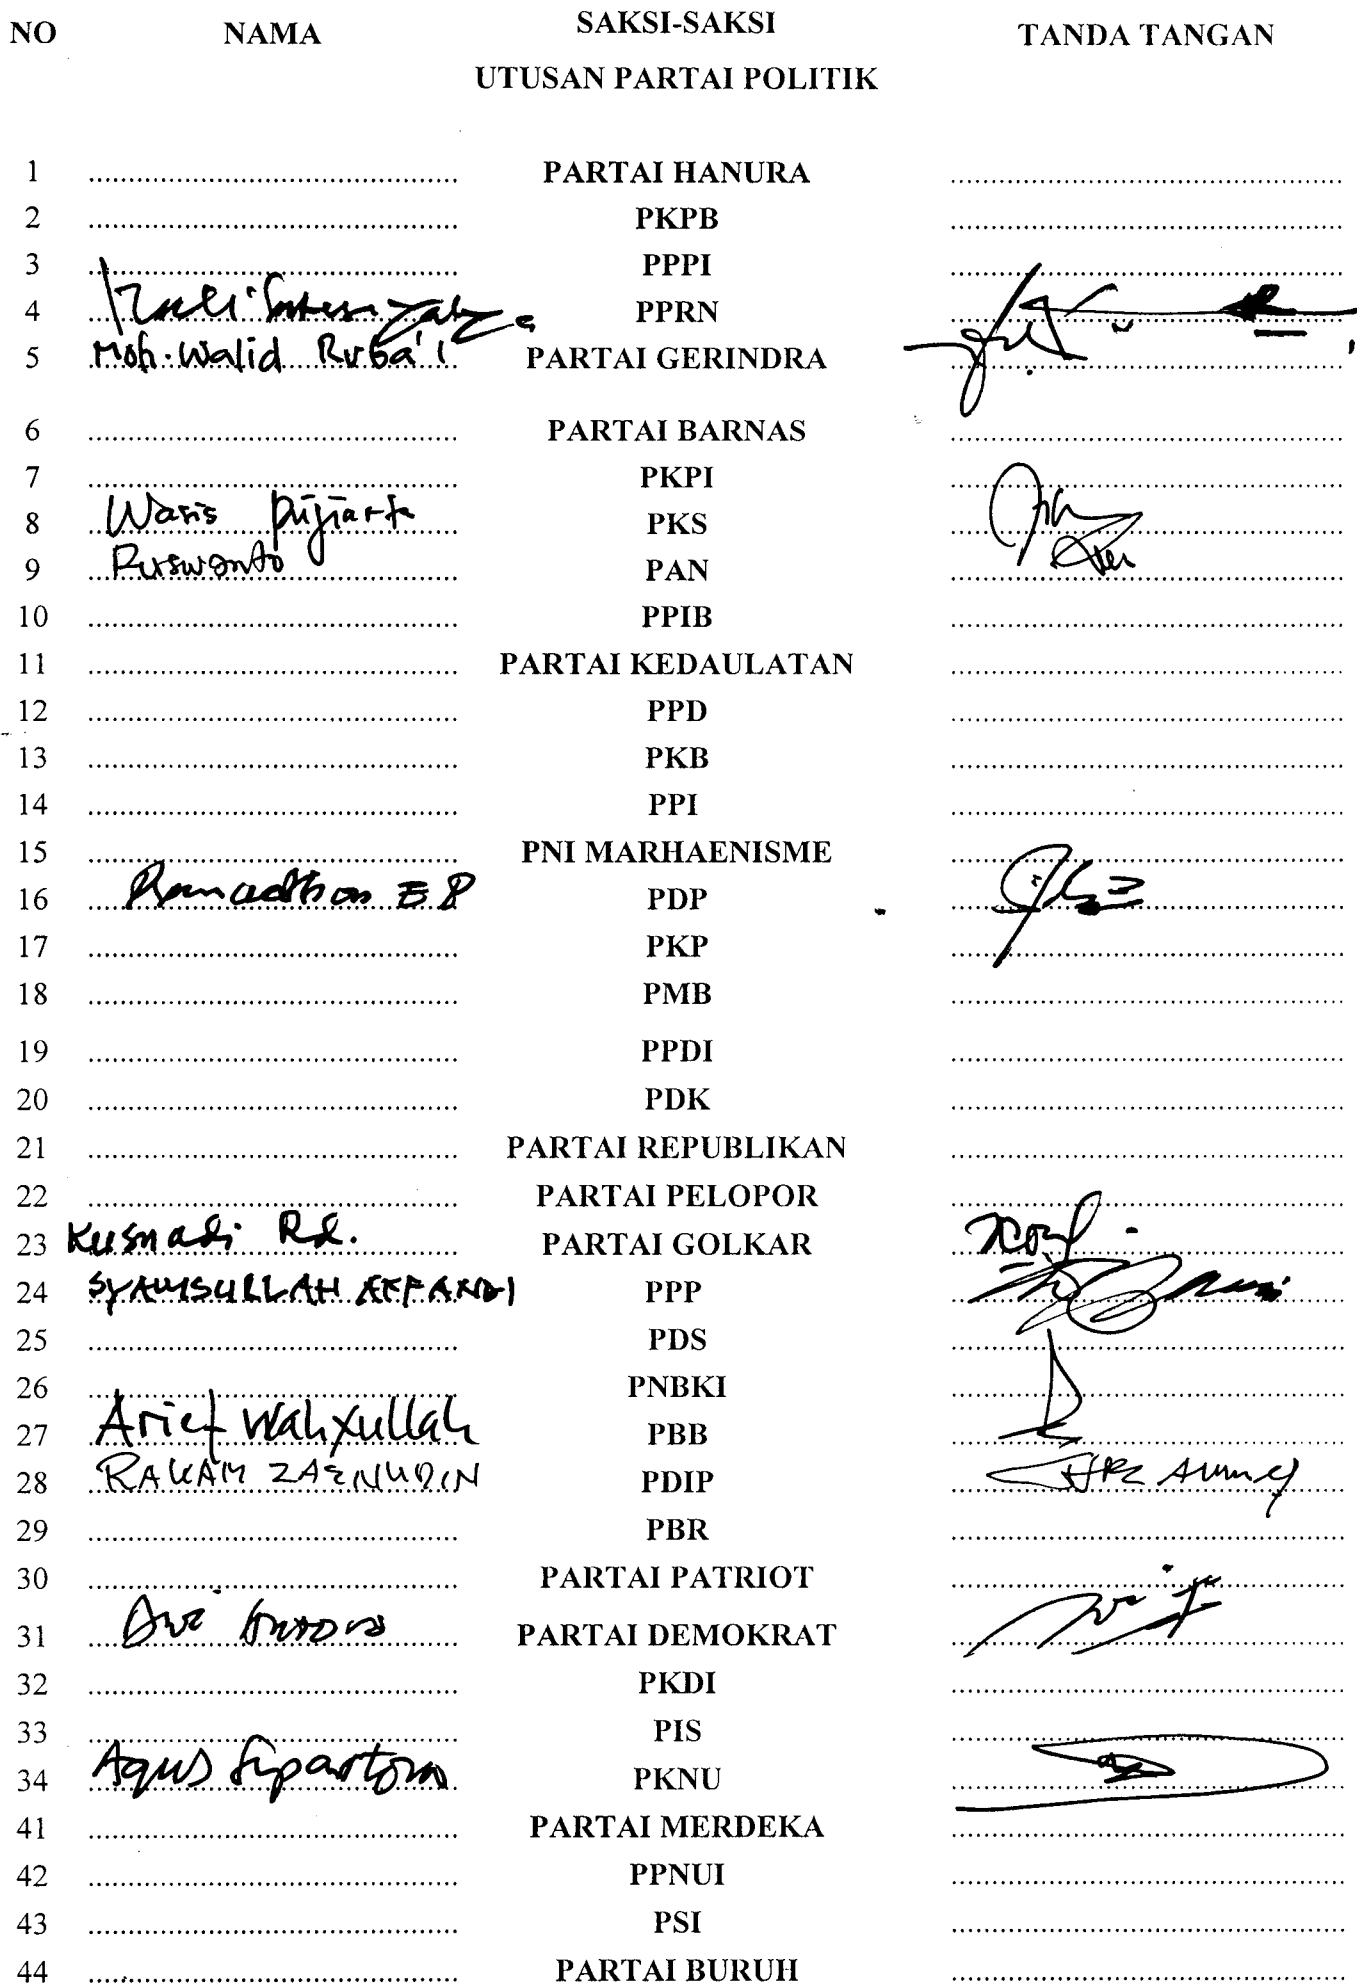 NO NAMA SAKSI-SAKSI TANDA TANGAN
UTUSAN PARTAI POLITIK
1 PARTAI HANURA
2 PKPB
3 PPPI
4 PPRN
5 Moh. Walid Ruba'i PARTAI GERINDRA
6 PARTAI BARNAS
7 PKPI
8 Wasis Pujiarta PKS
9 Ruswanto PAN
10 PPIB
11 PARTAI KEDAULATAN
12 PPD
13 PKB
14 PPI
15 PNI MARHAENISME
16 Ramadhan E P PDP
17 PKP
18 PMB
19 PPDI
20 PDK
21 PARTAI REPUBLIKAN
22 PARTAI PELOPOR
23 Kusnadi Rd. PARTAI GOLKAR
24 SYAMSULLAH EFFANDI PPP
25 PDS
26 PNBKI
27 Arief Wahyullah PBB
28 ZAENUDIN PDIP
29 PBR
30 PARTAI PATRIOT
31 PARTAI DEMOKRAT
32 PKDI
33 PIS
34 Agus PKNU
41 PARTAI MERDEKA
42 PPNUI
43 PSI
44 PARTAI BURUH